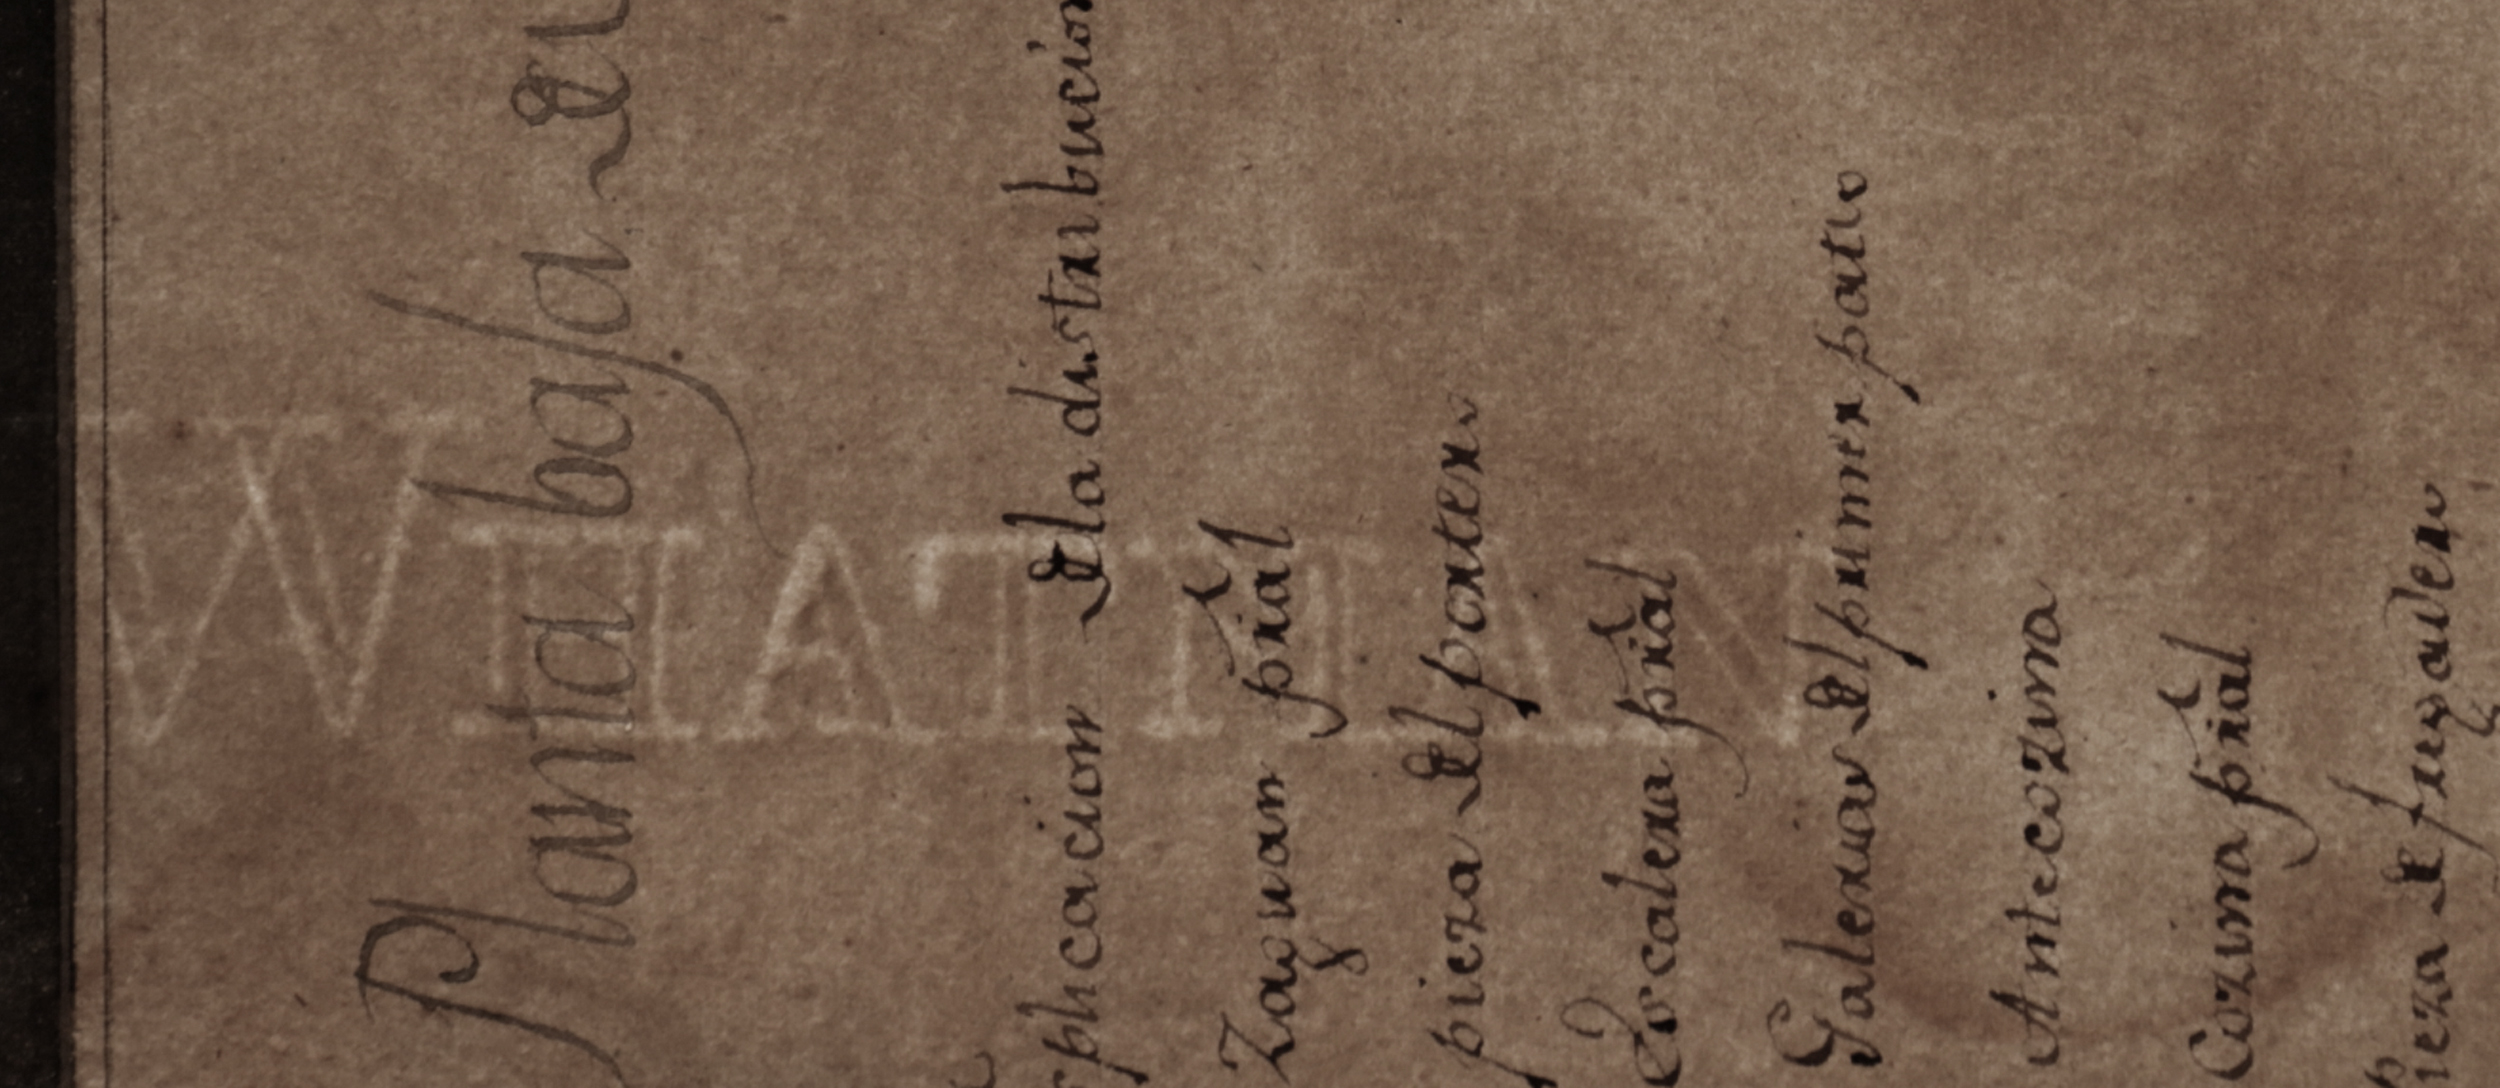 Planta baja
plicacion de la distribucion
Zaguan pral
pieza del portero
Escalera pral
Galerias del primer patio
Antecozina
Cozina pral
pieza de fregadero
WHATMAN